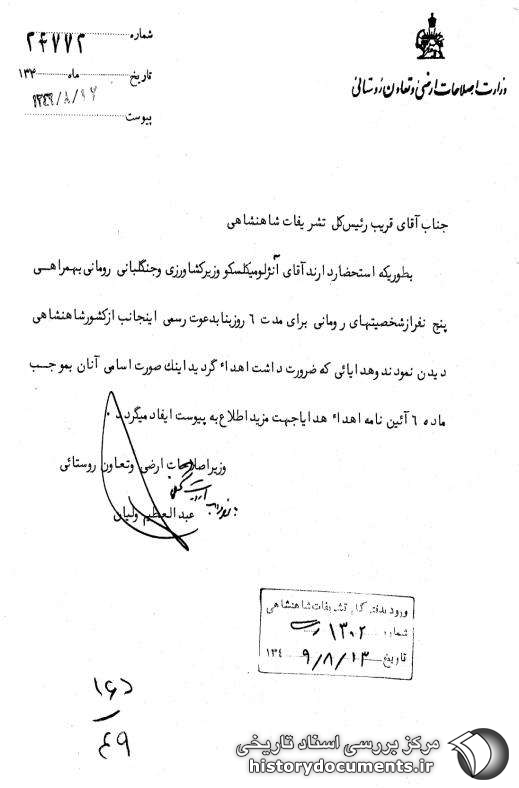 وزارت اصلاحات ارضی و تعاون روستائی
شماره
۲۶۷۷۲
تاریخ ماه ۱۳۴
پیوست
جناب آقای قریب رئیس کل تشریفات شاهنشاهی
بطوریکه استحضار دارند آقای آنژلومیکلسکو وزیر کشاورزی وجنگلبانی رومانی بهمراهی
پنج نفر از شخصیتهای رومانی برای مدت ٦ روز بنا بدعوت رسمی اینجانب از کشور شاهنشاهی
دیدن نمودند وهدایائی که ضرورت داشت اهداء گردید اینك صورت اسامی آنان بموجب
ماده ٦ آئین نامه اهداء هدایا جهت مزید اطلاع به پیوست ایفاد میگردد ۰
وزیر اصلاحات ارضی وتعاون روستائی
عبدالعظیم ولیان
ورود بدفتر کل تشریفات شاهنشاهی
شماره ۱۳۰۲
تاریخ ۹/۸/۱۳ ۱۳٤
مرکز بررسی اسناد تاریخی
historydocuments.ir